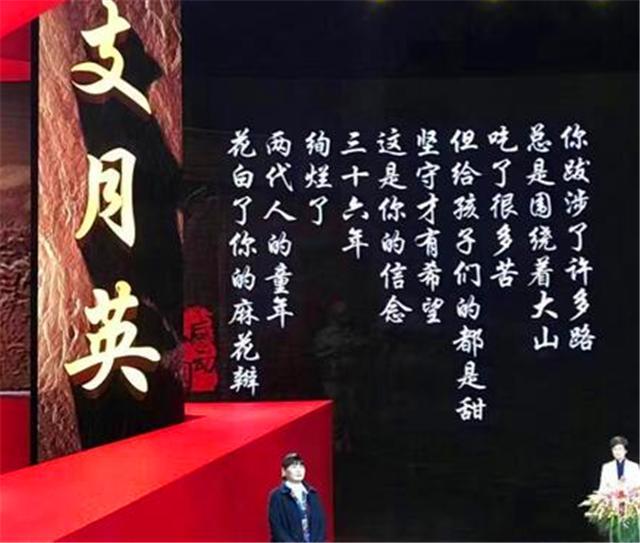 支月英
你跋涉了许多路
总是围绕着大山
吃了很多苦
但给孩子们的都是甜
坚守才有希望
这是你的信念
三十六年
绚烂了
两代人的童年
花白了你的麻花辫